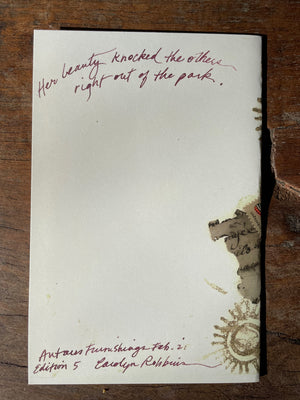 Her beauty knocked the others
right out of the park.
Antares Furnishings Feb. 21
Edition 5 Carolyn Robbins